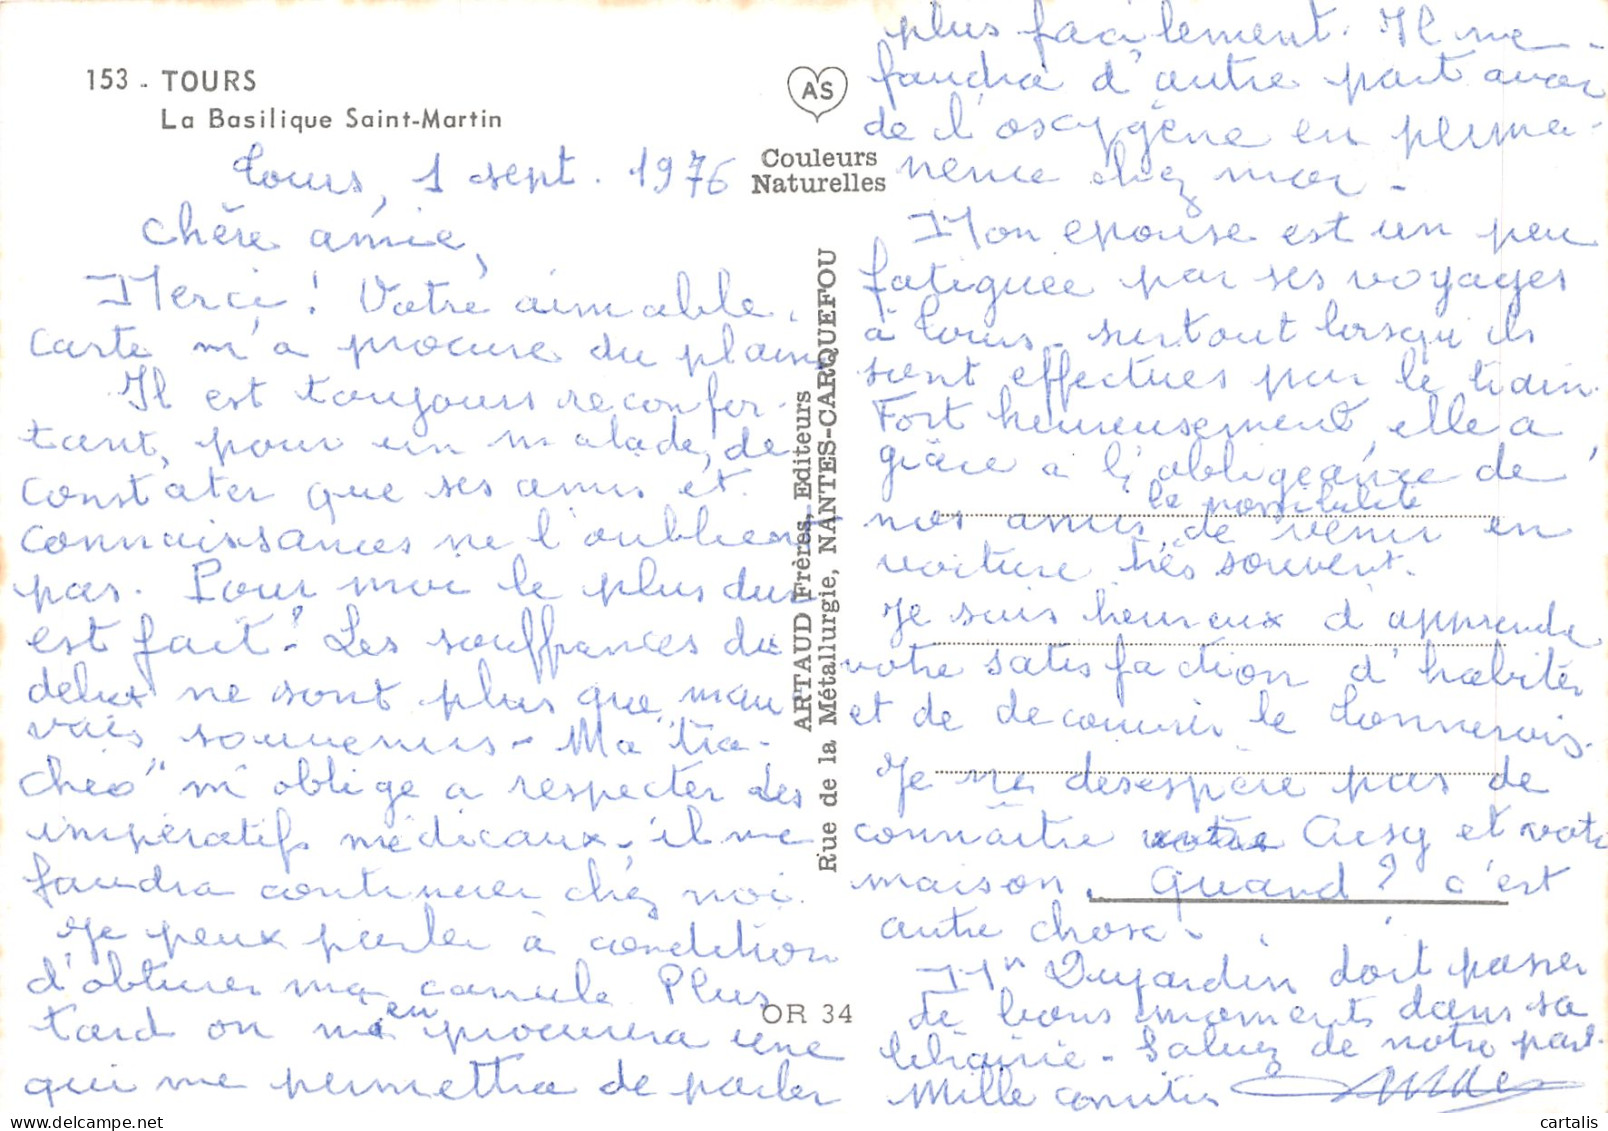 153 - TOURS
La Basilique Saint-Martin
AS
Couleurs
Naturelles
ARTAUD Frères, Editeurs
Rue de la Métallurgie, NANTES-CARQUEFOU
OR 34
Tours, 1 sept. 1976
Chère amie,
Merci ! Votre aimable
carte m'a procuré du plaisir
Il est toujours reconfor-
tant, pour un malade, de
constater que ses amis et
connaissances ne l'oublient
pas. Pour moi le plus dur
est fait ! Les souffrances du
debut ne sont plus que mau
vais souvenirs - Ma "tra-
cheo" m'oblige a respecter les
impératifs médicaux - il me
faudra continuer chez moi.
Je peux parler à condition
d'obturer ma canule. Plus
tard on m'en procurera une
qui me permettra de parler
plus facilement. Il me
faudra d'autre part avoir
de l'oxygène en perma-
nence chez moi -
Mon epouse est un peu
fatiguée par ses voyages
à Tours - surtout lorsqu'ils
sont effectués par le train.
Fort heureusement, elle a
grâce a l'obligeance de
la possibilité
nos amis, de venir en
voiture très souvent.
Je suis heureux d'apprendre
votre satisfaction d'habiter
et de decouvrir le Tonnerois.
Je ne desespère pas de
connaître Crusy et votre
maison. Quand ? c'est
autre chose -
Mr Dujardin doit passer
de bons moments dans sa
librairie - Saluez de notre part.
Mille amitiés